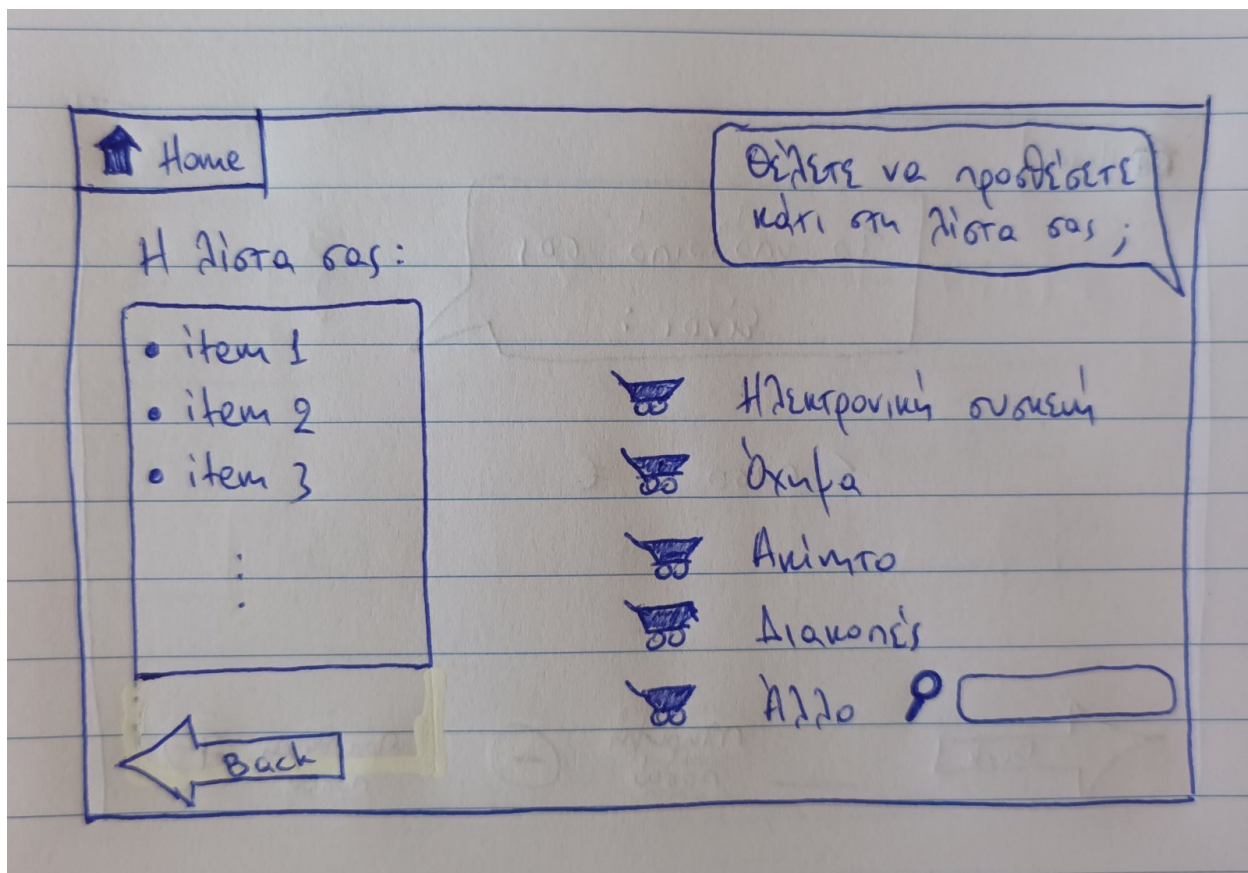 Home
Θέλετε να προσθέσετε
κάτι στη λίστα σας;
Η λίστα σας:
• item 1
• item 2
• item 3
Ηλεκτρονική συσκευή
Όχημα
Ακίνητο
Διακοπές
Άλλο
Back